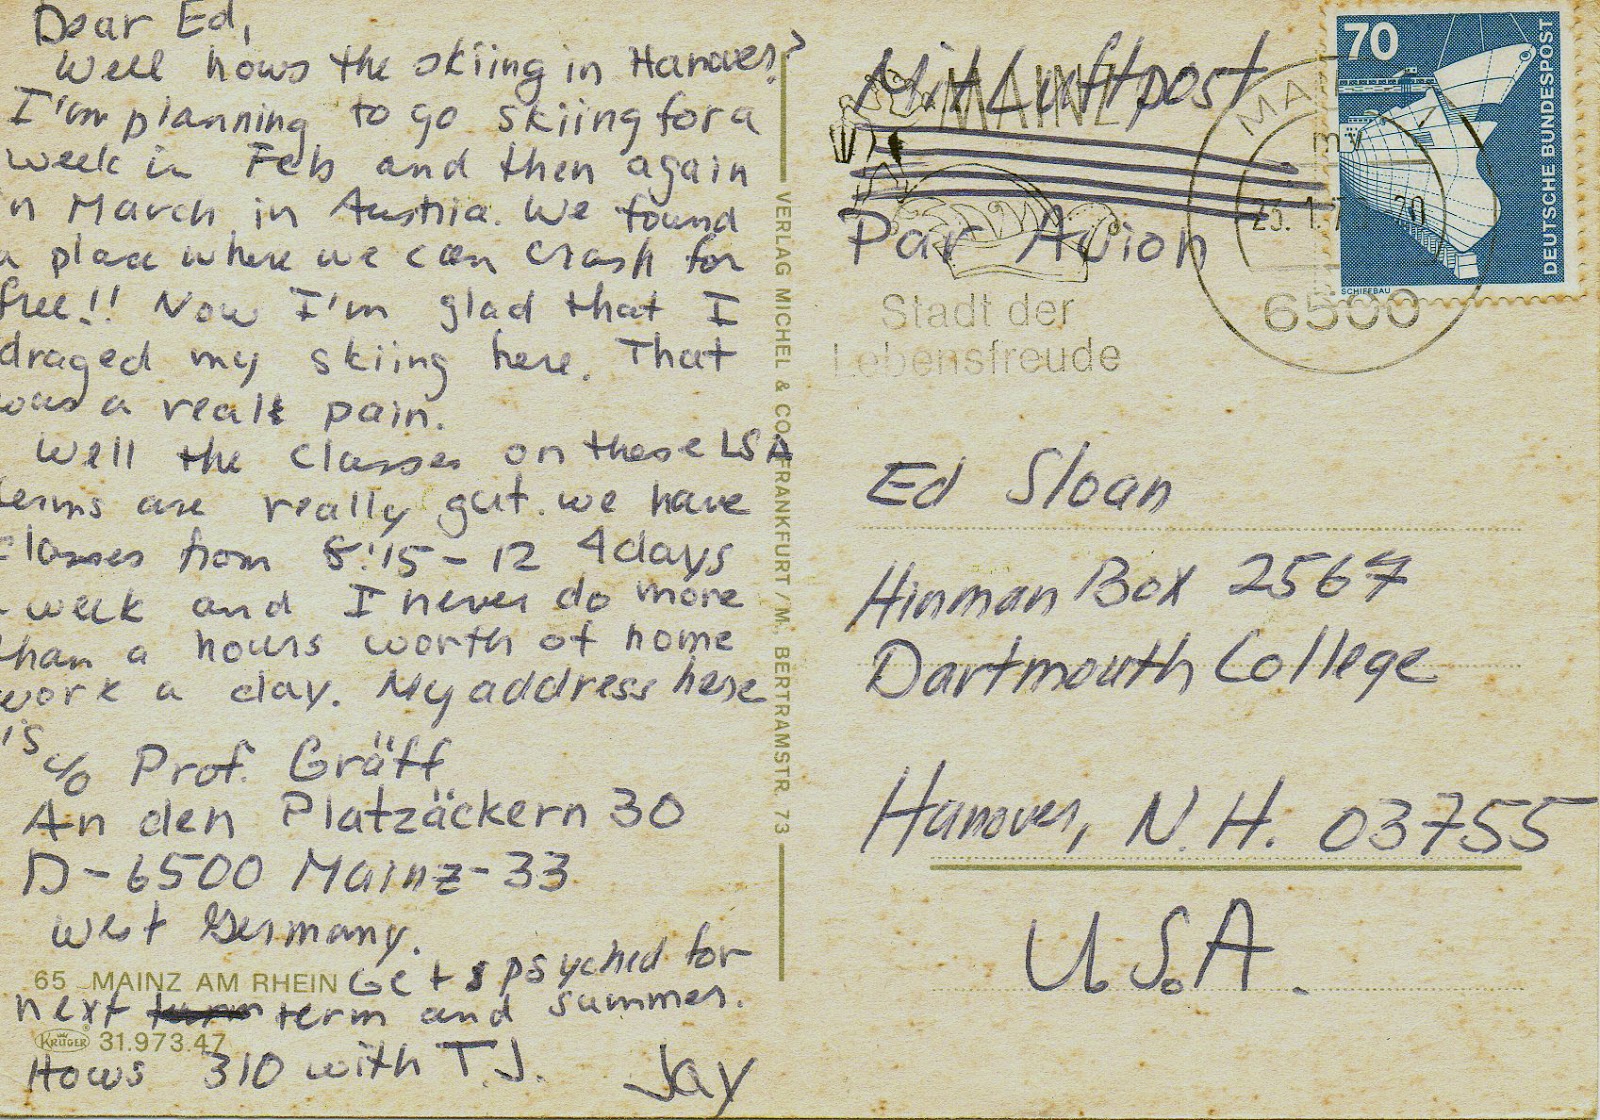 Dear Ed,
Well hows the skiing in Hanover?
I'm planning to go skiing for a
week in Feb and then again
n March in Austria. We found
a place where we can crash for
free!! Now I'm glad that I
draged my skiing here. That
was a realt pain.
Well the classes on these LSA
terms are really gut. we have
classes from 8:15-12 4days
a week and I never do more
than a hours worth of home
work a day. My address here
is
c/o Prof. Gräff
An den Platzäckern 30
D-6500 Mainz-33
West Germany.
65 MAINZ AM RHEIN Get s psyched for
next term term and summer.
KRÜGER 31.973.47
Hows 310 with T.J. Jay
VERLAG MICHEL & CO. FRANKFURT / M., BERTRAMSTR. 73
Mit Luftpost
Par Avion
MAINZ
Stadt der
Lebensfreude
MA
mv
25.1.7 20
6500
70
DEUTSCHE BUNDESPOST
SCHIFFBAU
Ed Sloan
Hinman Box 2567
Dartmouth College
Hanover, N.H. 03755
U.S.A.